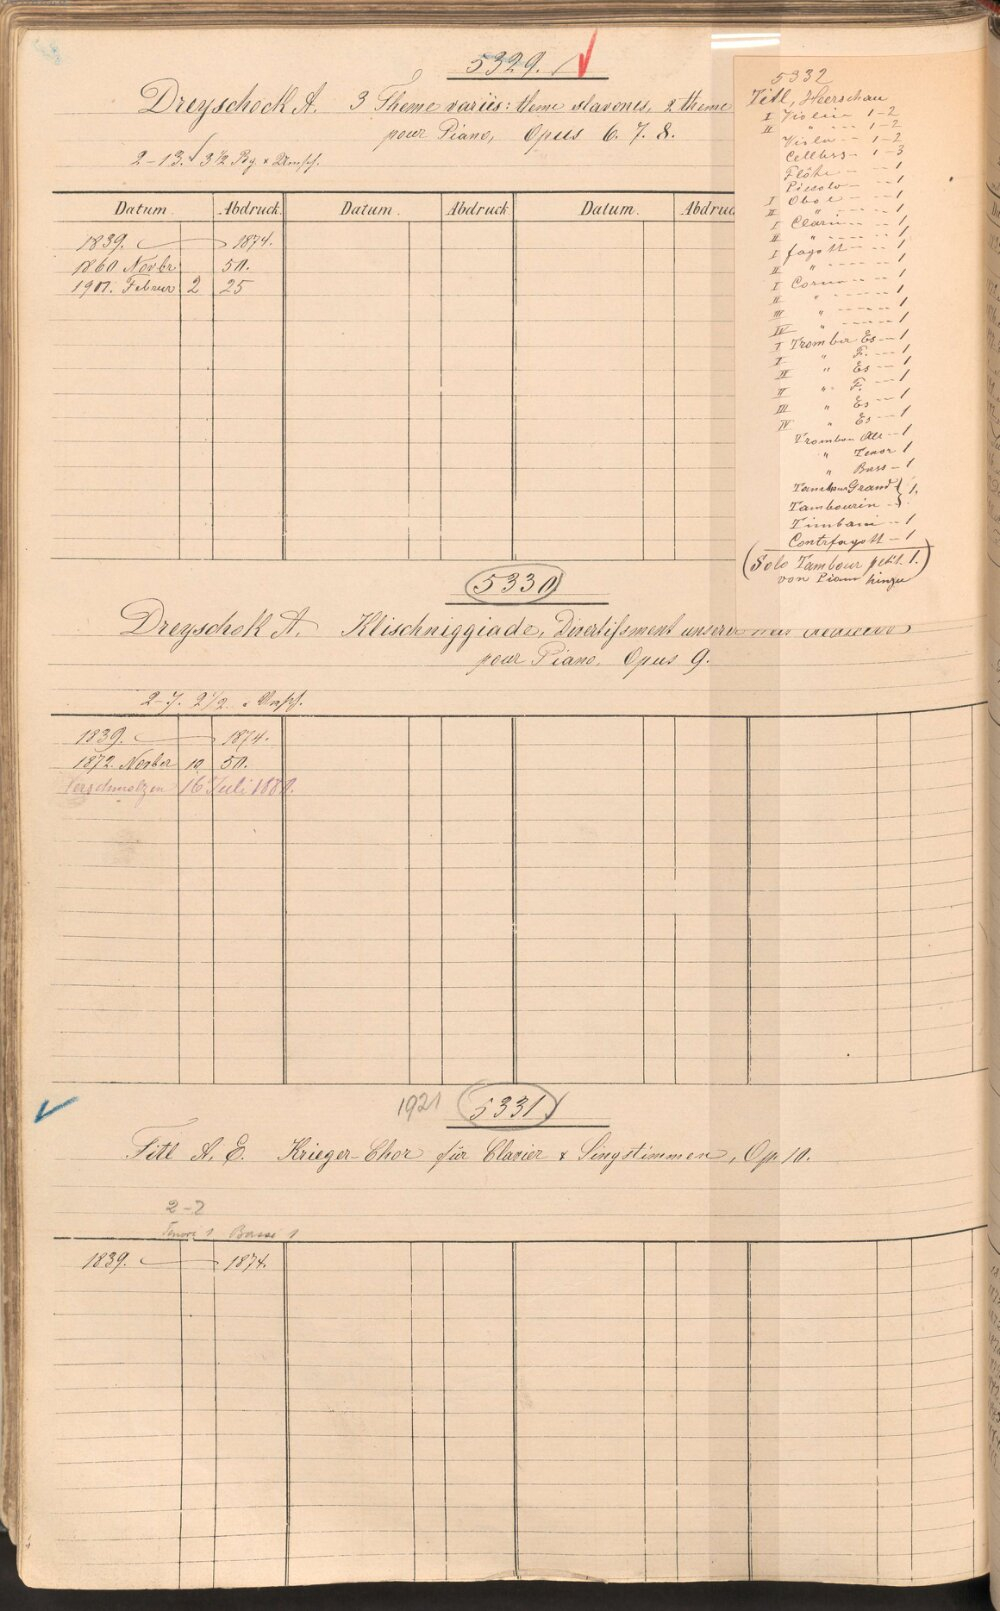 5329.
Dreyschock A. 3 Theme variés: theme slavones, 2 theme
pour Piano, Opus 6. 7. 8.
2-13. 3 1/2 Bg + Umsch.
Datum. Abdruck. Datum. Abdruck Datum. Abdruc
1839. 1874.
1860 Novbr 50.
1901. Februr 2 25
5332
Titl, Heerschau
I Violin 1-2
II " 1-2
Viola - 1-2
Cellbss - 1-3
Flöte - 1
Piccolo - 1
I Oboe - 1
II " - 1
I Clarin - 1
II " - 1
I fagott - 1
II " - 1
I Corno - 1
II " - 1
III " - 1
IV " - 1
I Trombe Es - 1
I " F. - 1
II " Es - 1
II " F. - 1
III " Es - 1
IV " Es - 1
Trombon Alt - 1
" Tenor 1
" Bass - 1
Tambour Grand } 1.
Tambourin - }
Timbani - 1
Contrfagott - 1
(Solo Tambour petit. 1.)
von Piano hinzu
5330
Dreyschok A. Klischniggiade, Divertissment
pour Piano. Opus 9.
2-7. 2 1/2. + Umsch.
1839. 1874.
1872. Novber 10 50.
Verschmelzen 16 Juli 1880.
1921 5331
Titl A. E. Krieger-Chor für Clavier & Singstimmen, Op. 10.
2-7
Tenore 1 Basse 1
1839. 1874.